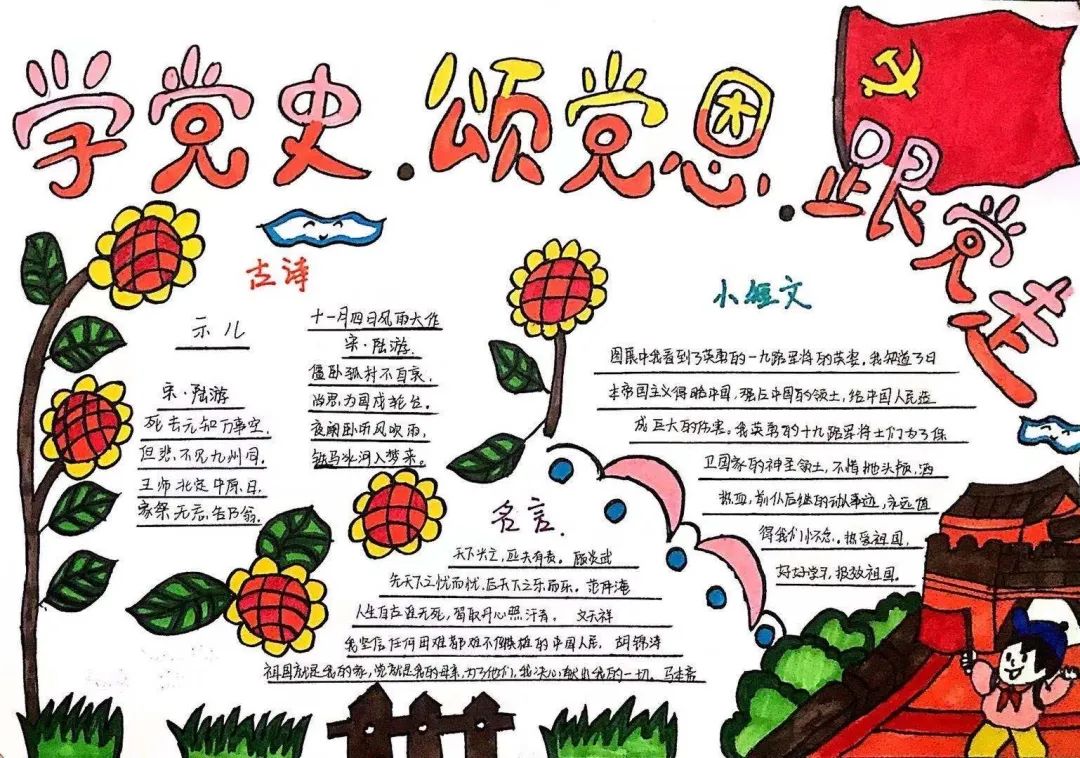 学党史·颂党恩·跟党走
古诗
示儿
宋·陆游
死去元知万事空,
但悲不见九州同,
王师北定中原日,
家祭无忘告乃翁.
十一月四日风雨大作
宋·陆游.
僵卧孤村不自哀,
尚思为国戍轮台.
夜阑卧听风吹雨,
铁马冰河入梦来.
名言.
天下兴亡,匹夫有责. 顾炎武
先天下之忧而忧,后天下之乐而乐. 范仲淹
人生自古谁无死,留取丹心照汗青. 文天祥
我坚信任何困难都难不倒英雄的中国人民. 胡锦涛
祖国就是我的家,党就是我的母亲,为了他们,我决心献出我的一切.
小短文
图展中我看到了英勇的一九路军将的英姿.我知道了日
本帝国主义侵略中国,强占中国的领土,给中国人民造
成巨大的伤害.我英勇的十九路军将士们为了保
卫国家的神圣领土,不惜抛头颅,洒
热血,前仆后继的动人事迹,永远值
得我们小不忘.热爱祖国,
好好学习,报效祖国.